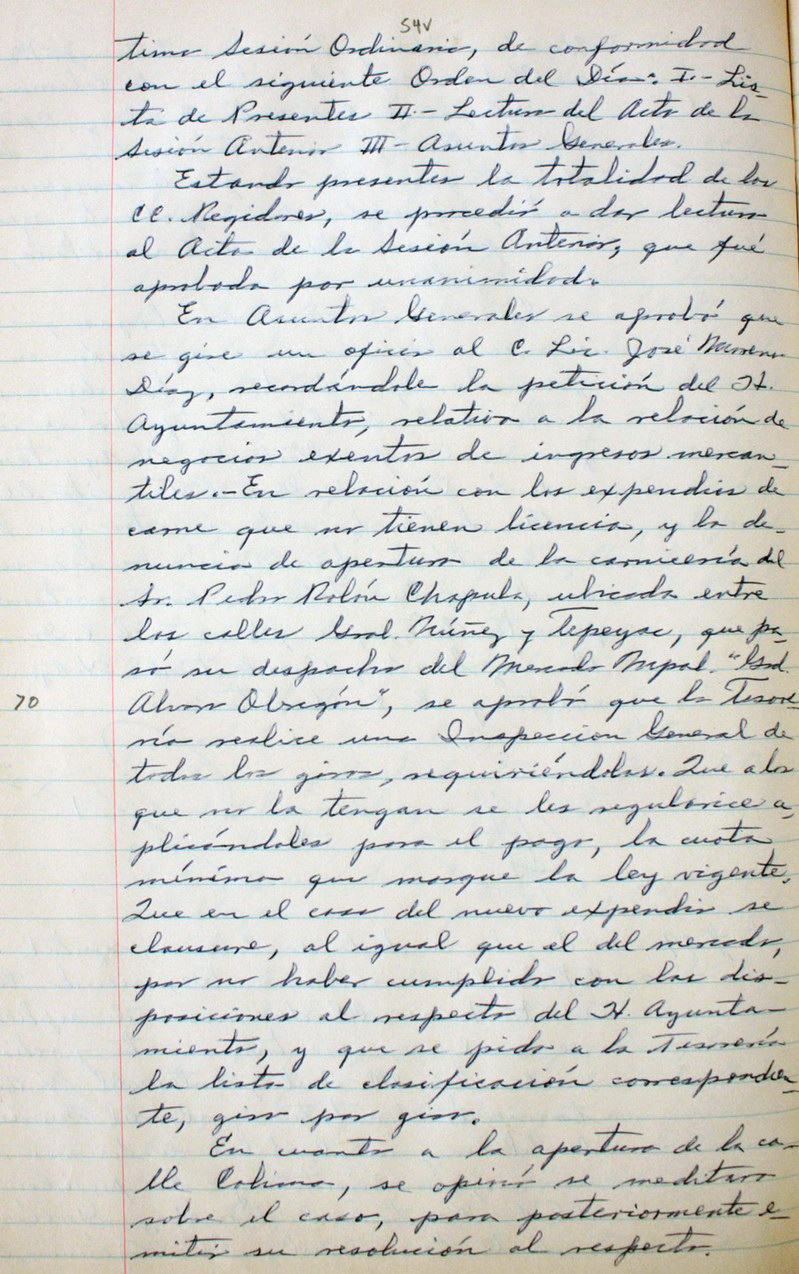 54v
tima Sesión Ordinaria, de conformidad
con el siguiente Orden del Día: I.- Lis-
ta de Presentes II.- Lectura del Acta de la
Sesión Anterior III - Asuntos Generales.
Estando presentes la totalidad de los
CC. Regidores, se procedió a dar lectura
al Acta de la Sesión Anterior, que fué
aprobada por unanimidad.
En Asuntos Generales se aprobó que
se gire un oficio al C. Lic. José Moreno
Díaz, recordándole la petición del H.
Ayuntamiento, relativa a la relación de
negocios exentos de ingresos mercan-
tiles.- En relación con los expendios de
carne que no tienen licencia, y la de-
nuncia de apertura de la carnicería del
Sr. Pedro Rolón Chapula, ubicada entre
las calles Gral. Núñez y Tepeyac, que pa-
só su despacho del Mercado Mpal. "Gral.
70
Alvaro Obregón", se aprobó que la Tesore-
ría realice una Inspección General de
todos los giros, requiriéndolos. Que a los
que no la tengan se les regularice a-
plicándoles para el pago, la cuota
mínima que marque la ley vigente.
Que en el caso del nuevo expendio se
clausure, al igual que el del mercado,
por no haber cumplido con las dis-
posiciones al respecto del H. Ayunta-
miento, y que se pida a la Tesorería
la lista de clasificación correspondien-
te, giro por giro.
En cuanto a la apertura de la ca-
lle Colima, se opinó se meditara
sobre el caso, para posteriormente e-
mitir su resolución al respecto.